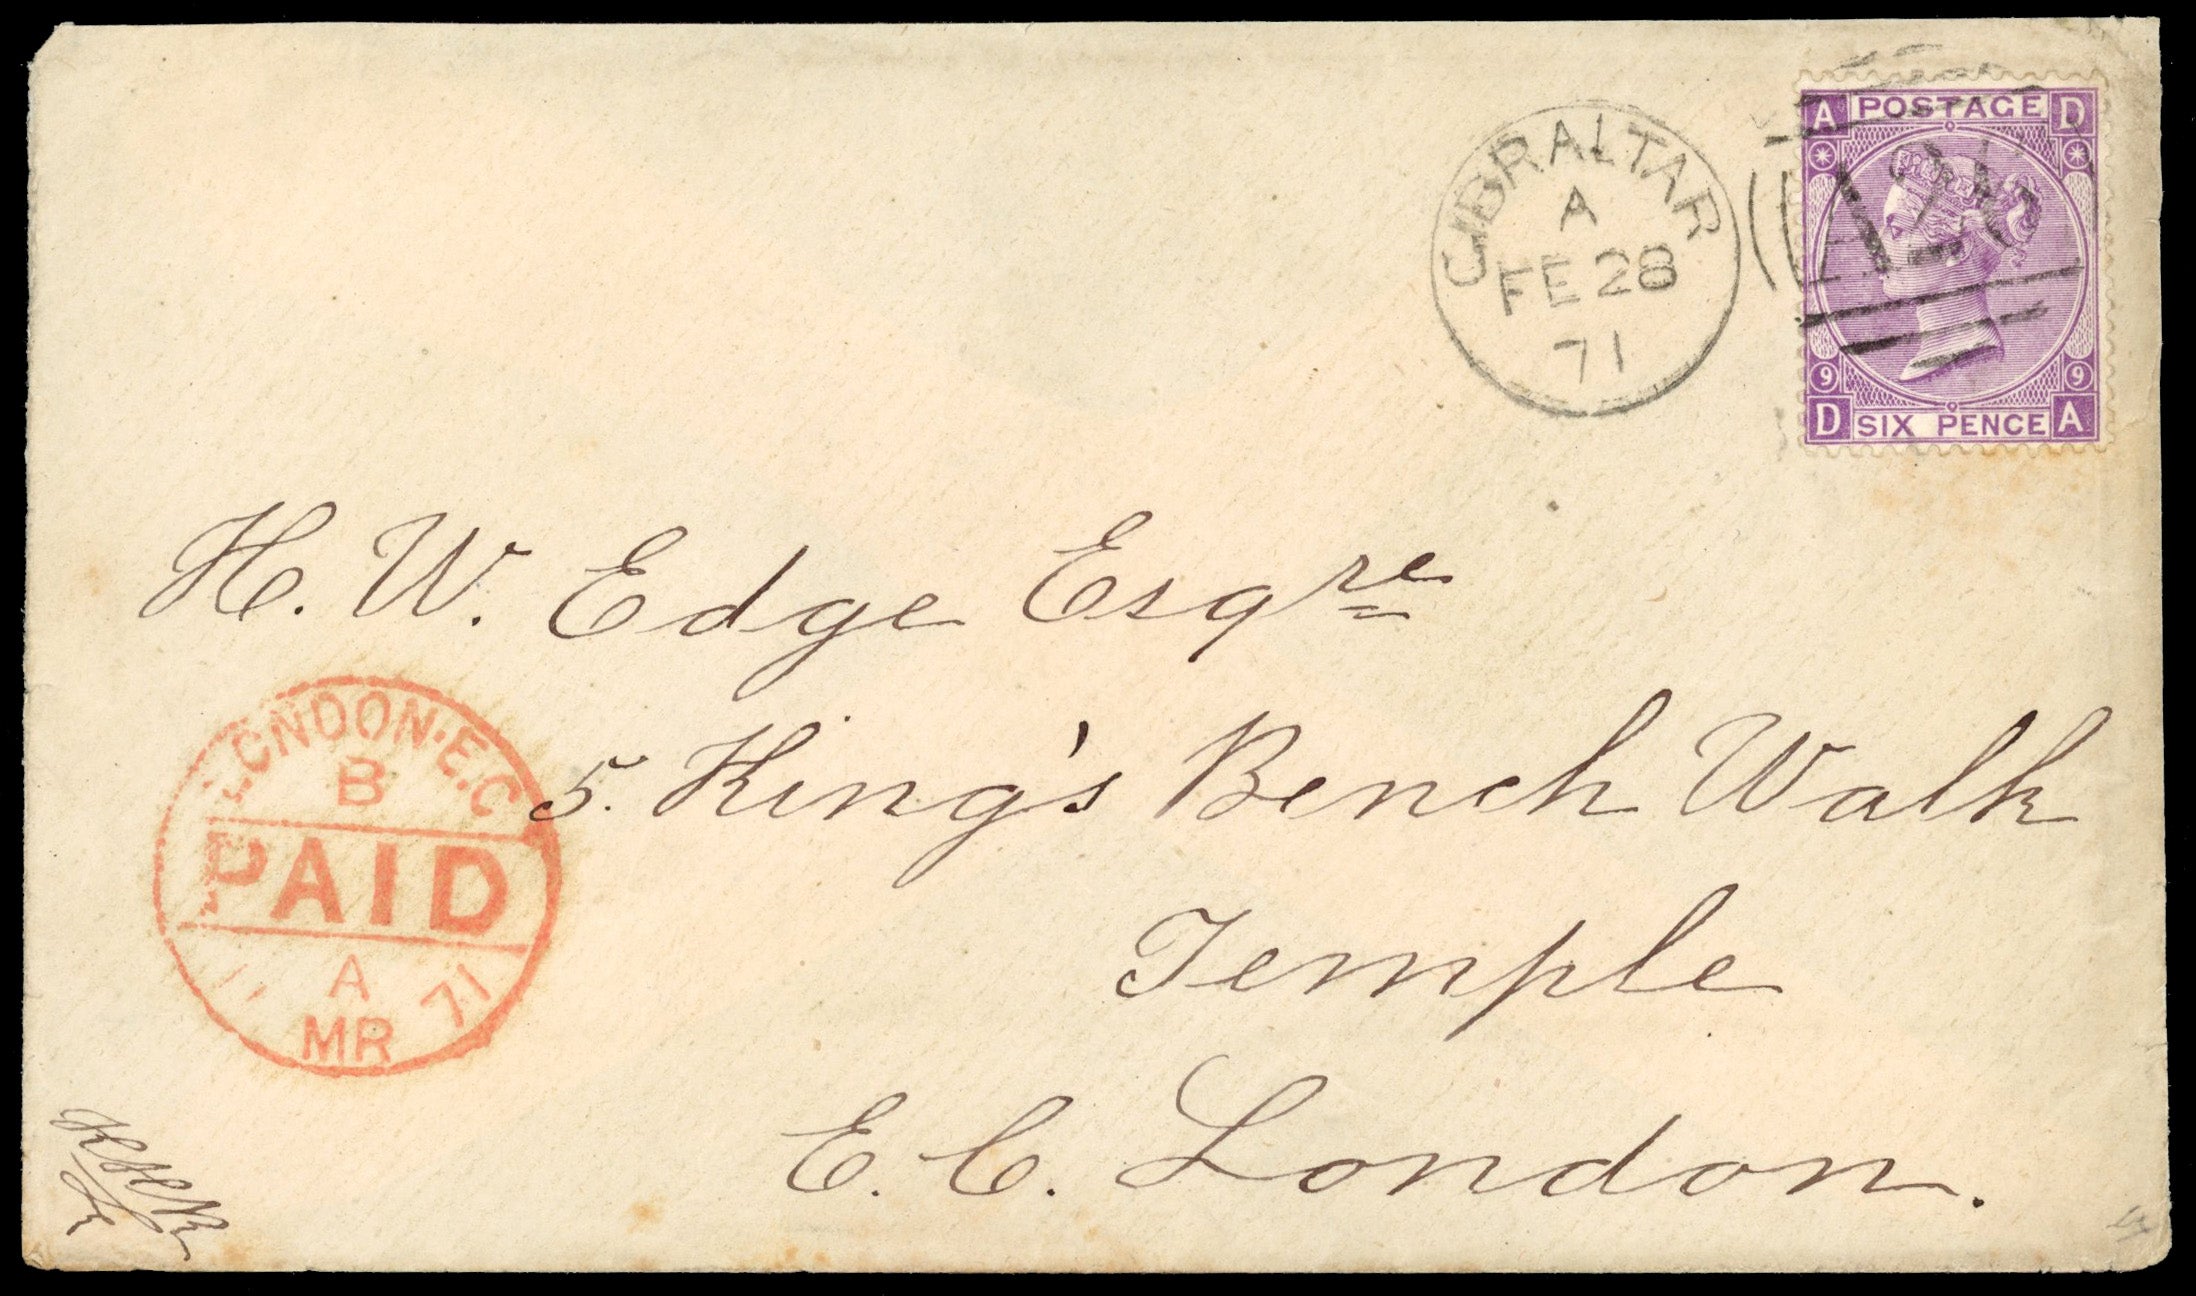 GIBRALTAR
A
FE 28
71
A POSTAGE D
9 9
D SIX PENCE A
H. W. Edge Esqre
5. King's Bench Walk
Temple
E. C. London.
LONDON·E.C
B
PAID
A
MR 71